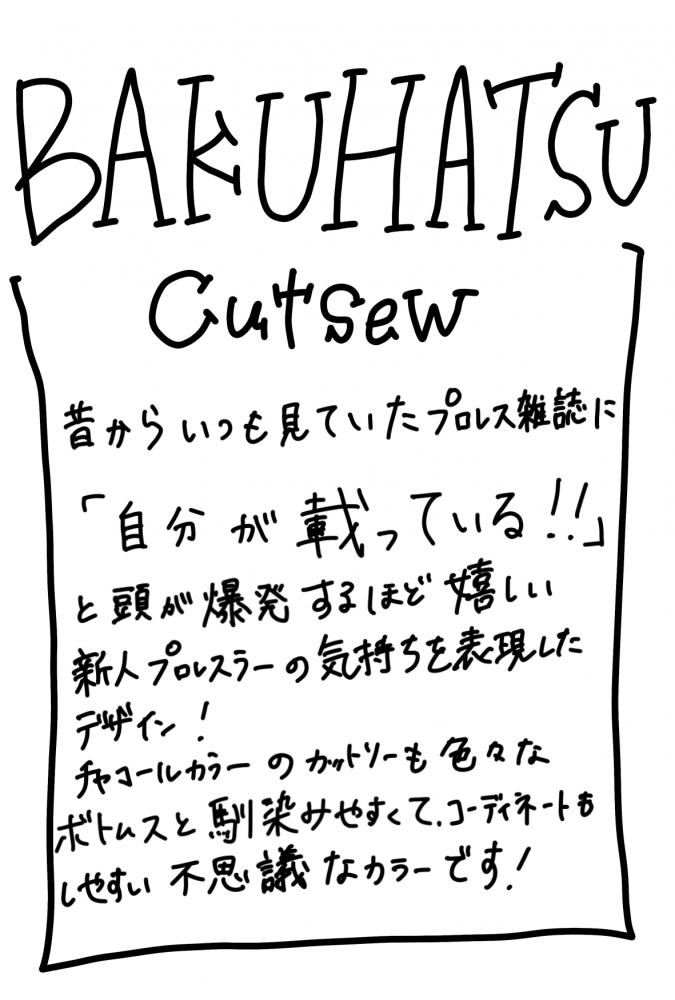 BAKUHATSU
Cutsew
昔からいつも見ていたプロレス雑誌に
「自分が載っている!!」
と頭が爆発するほど嬉しい
新人プロレスラーの気持ちを表現した
デザイン!
チャコールカラーのカットソーも色々な
ボトムスと馴染みやすくて、コーディネートも
しやすい不思議なカラーです!